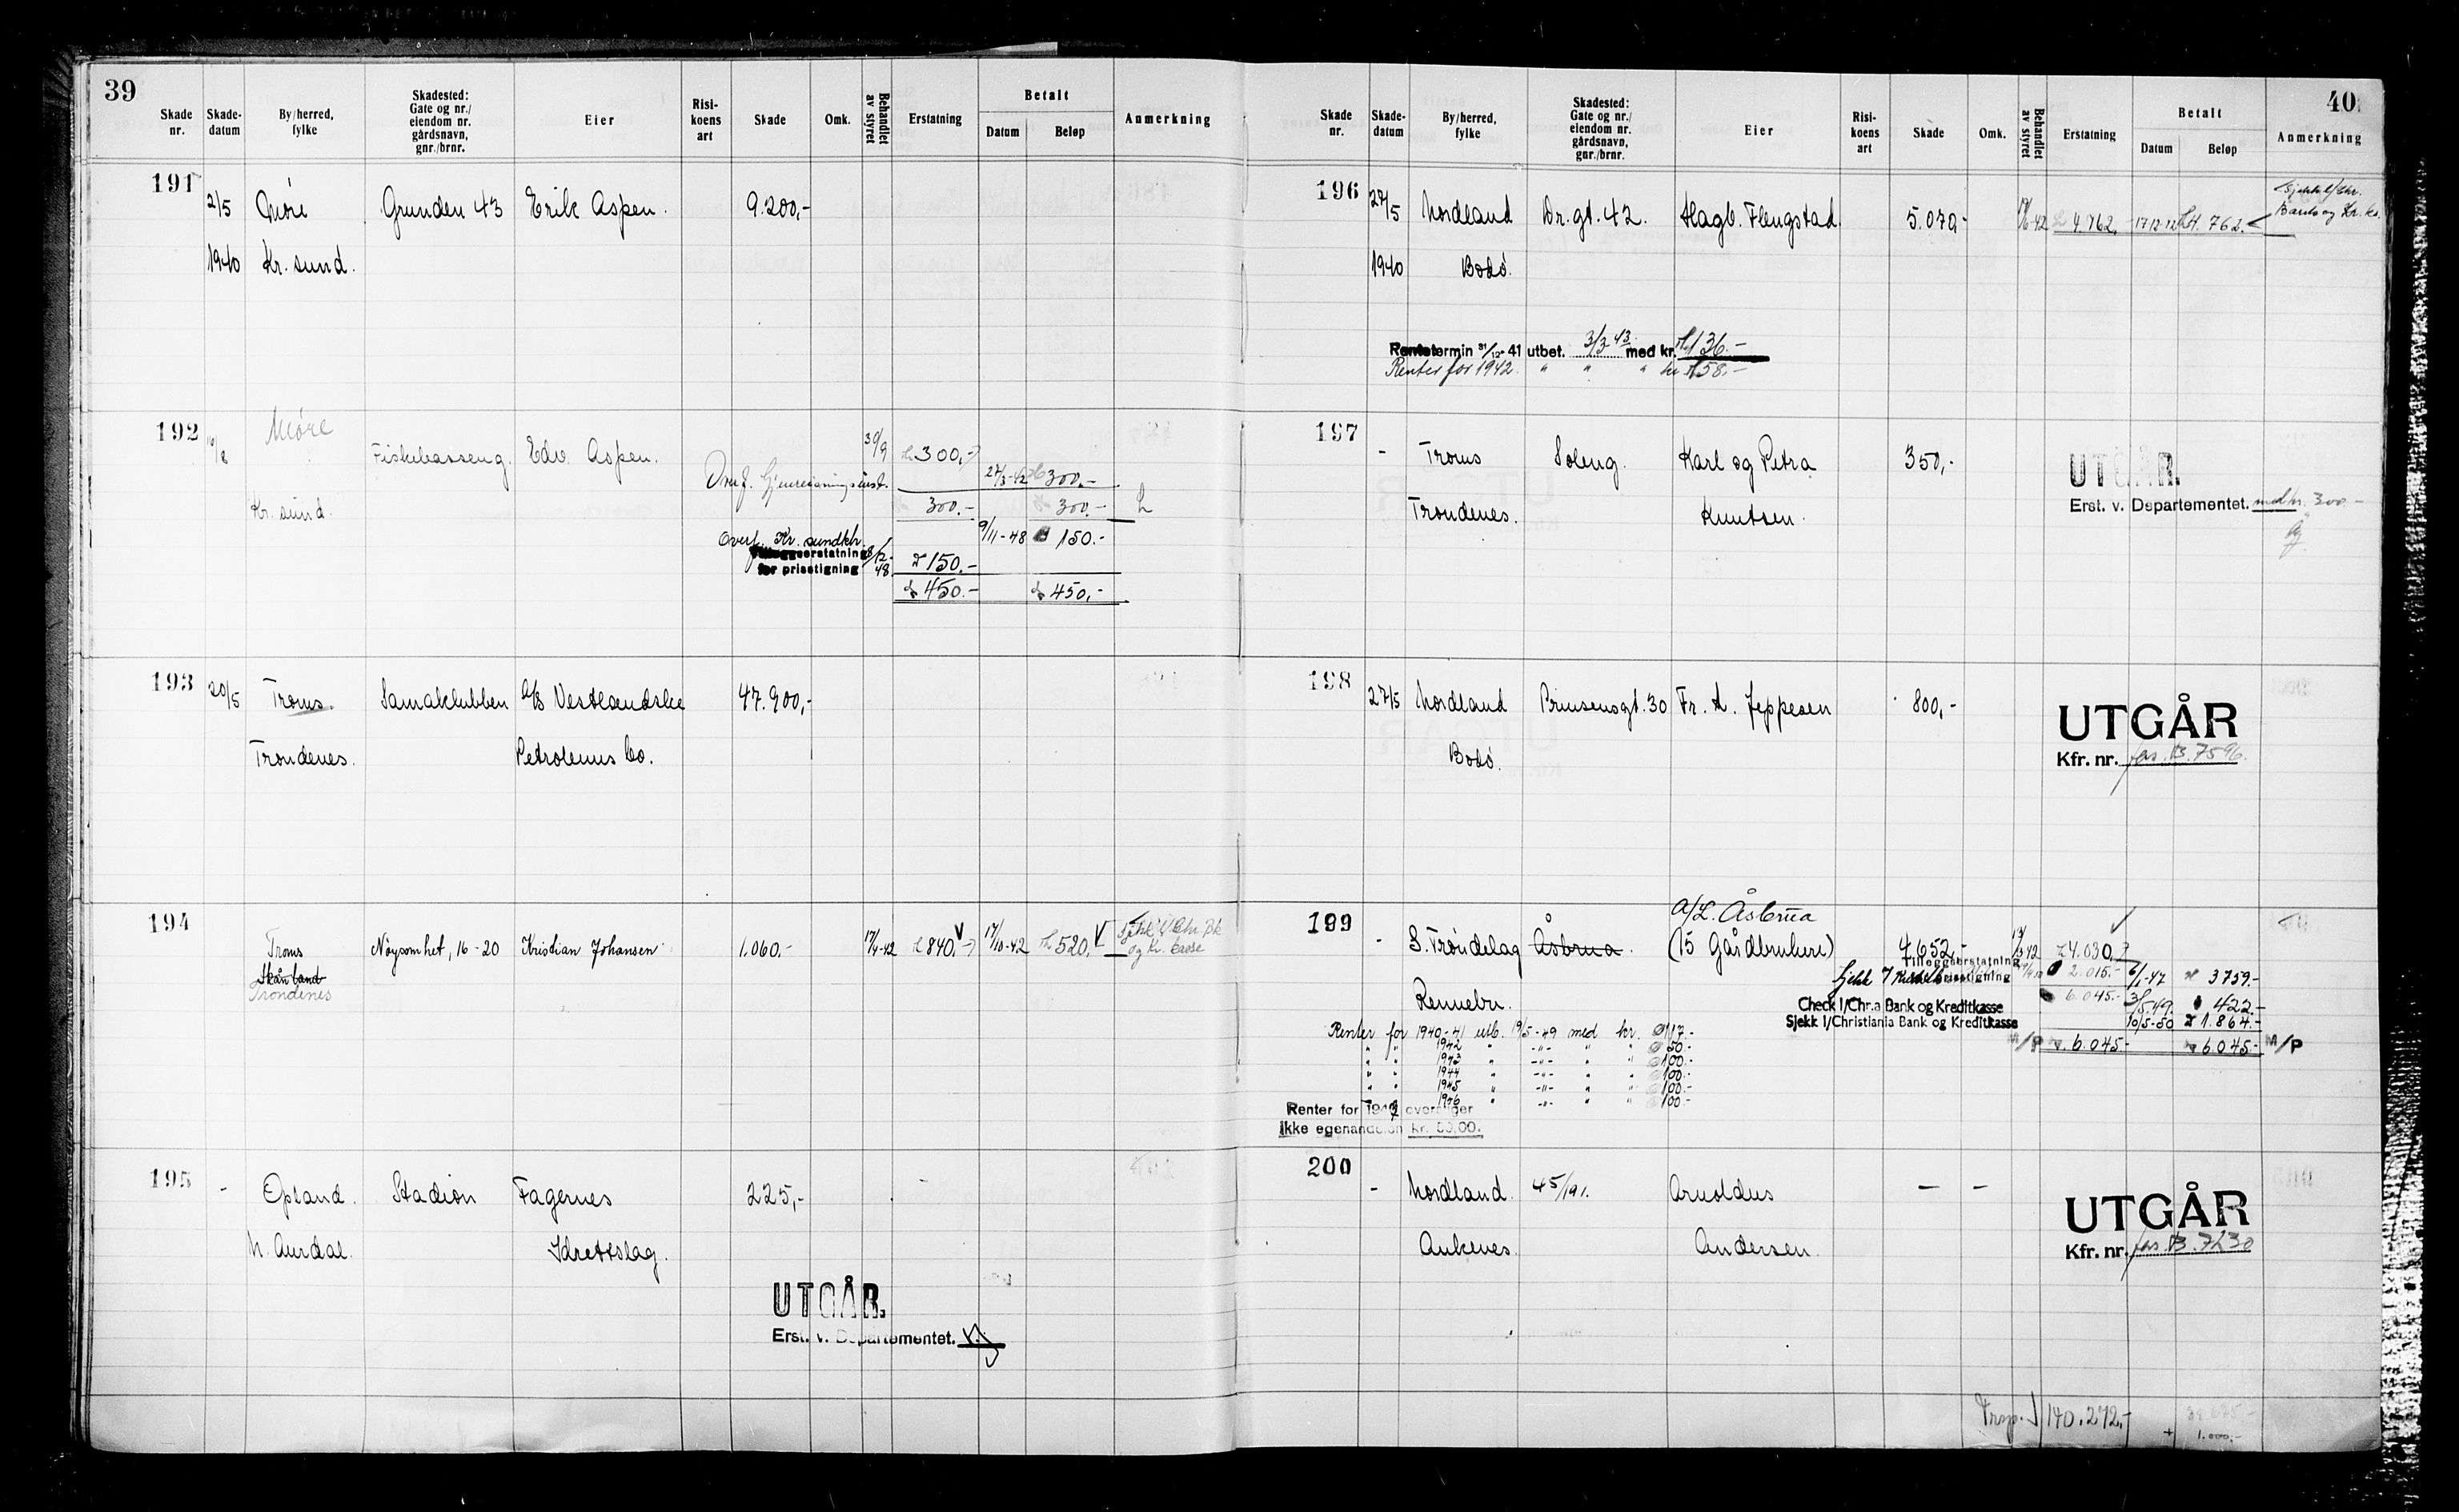 39
Skade nr.
Skade-datum
By/herred, fylke
Skadested: Gate og nr./ eiendom nr. gårdsnavn, gnr./brnr.
Eier
Risi-koens art
Skade
Omk.
Behandlet av styret
Erstatning
Betalt
Datum
Beløp
Anmerkning
191
2/5 Møre Grunden 43 Erik Aspen. 9.200,-
1940 Kr. sund.
192
Møre
10/8 Fiskebasseng. Edv. Aspen. 30/9 300,-
Overf. Gjenreisningsinst. 27/3-42 300.-
Kr. sund. 300.- 300.-
Overf. Kr. sundktr. 9/11-48 150.-
Tilleggserstatning for prisstigning 8/12-48 150.-
450.- 450,-
193
20/5 Troms. Samaklubben A/S Vestlandske 47.900,-
Trondenes. Petroleums Co.
194
Troms Nøysomhet, 16-20 Kristian Johansen 1.060.- 17/4-42 840,- 17/10-42 520,- Sjekk Chr. Bk
Skånland og Kr. kasse
Trondenes
195
- Opland. Stadion Fagernes 225,-
N. Aurdal. Idrettslag.
UTGÅR.
Erst. v. Departementet.
40
Skade nr.
Skade-datum
By/herred, fylke
Skadested: Gate og nr./ eiendom nr. gårdsnavn, gnr./brnr.
Eier
Risi-koens art
Skade
Omk.
Behandlet av styret
Erstatning
Betalt
Datum
Beløp
Anmerkning
196
27/5 Nordland Dr. gt. 42. Hagb. Flengstad. 5.070,- 4.762, 17-12-42 4.762.- Sjekk l/Chr.
Bank og Kr. ks.
1940 Bodø.
Rentetermin 31/12-41 utbet. 3/3 43 med kr. 136.-
Renter for 1942 " " " kr 158.-
197
- Troms Soleng. Karl og Petra 350,-
Trondenes. Knutsen.
UTGÅR.
Erst. v. Departementet. med kr. 300-
198
27/5 Nordland Prinsensgt. 30 Fr. A. Jeppesen 800,-
Bodø.
UTGÅR
Kfr. nr. B. 7596.
199
A/L. Åsbrua
- S. Trøndelag Åsbrua. (15 Gårdbrukere) 4.652,- 4.030,
Tilleggserstatning prisstigning 2.015.- 6/1-47 3759.-
Rennebu.
Check l/Chr.a Bank og Kreditkasse 6.045.- 3/5-49. 422.-
Sjekk l/Christiania Bank og Kreditkasse 10/5-50 1.864.-
M/P 6.045.- 6.045.- M/P
Renter for 1940-41 utb. 19/5-49 med kr. 117.-
" " 1942 " -"- " " 50.-
" " 1943 " -"- " " 100.-
" " 1944 " -"- " " 100.-
" " 1945 " -"- " " 100.-
" " 1946 " -"- " " 100.-
Renter for 1947 overstiger
ikke egenandelen kr. 50,00.
200
- Nordland. 45/191. Arnoldus - -
Ankenes. Andersen.
UTGÅR
Kfr. nr. B. 7230
Trsp. 140.272,-
1.000.-